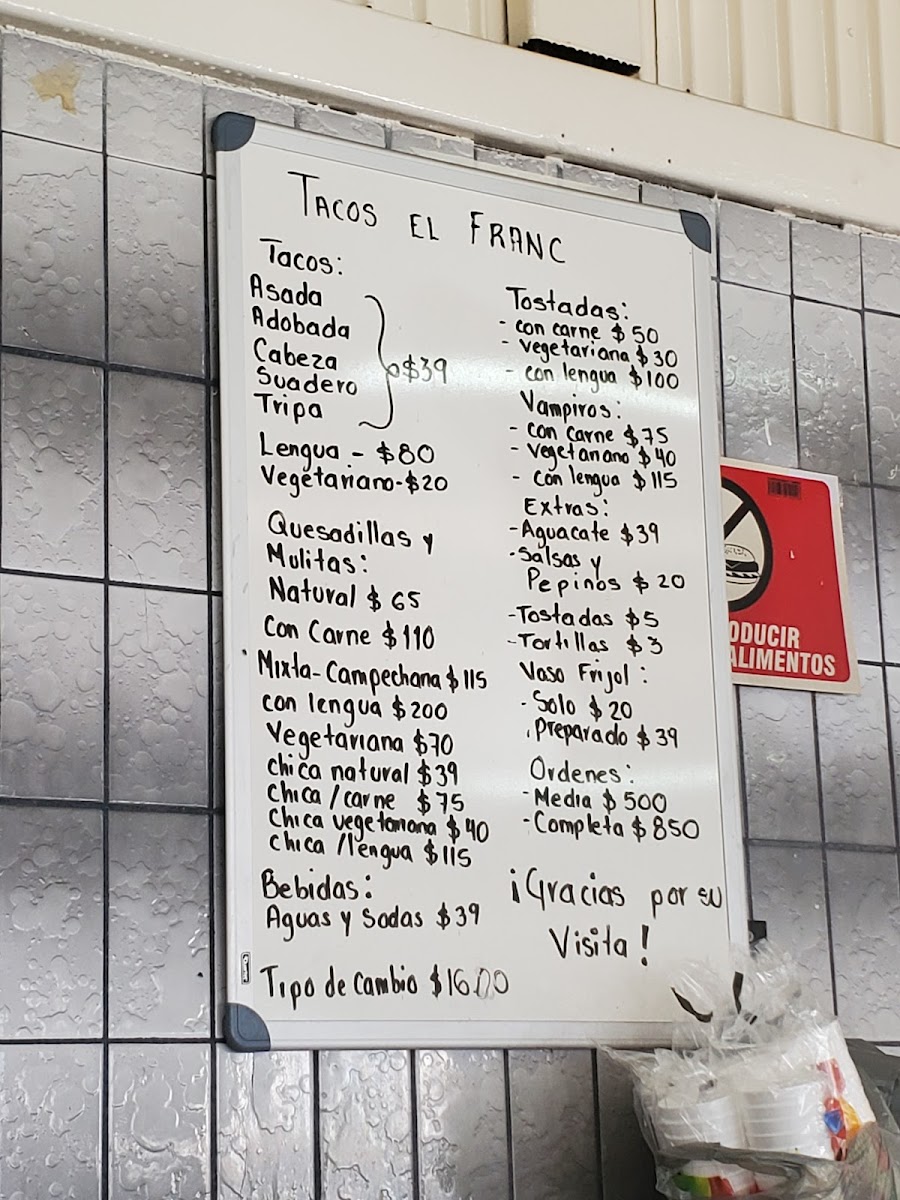 TACOS EL FRANC
Tacos:
Asada
Adobada
Cabeza
Suadero
Tripa
$39
Lengua - $80
Vegetariano-$20
Quesadillas y
Mulitas:
Natural $65
Con Carne $110
Mixta-Campechana $115
con lengua $200
Vegetariana $70
chica natural $39
chica/carne $75
Chica vegetariana $40
chica/lengua $115
Bebidas:
Aguas y Sodas $39
Tipo de cambio $16.00
Tostadas:
- con carne $50
- vegetariana $30
- con lengua $100
Vampiros:
- con carne $75
- Vegetariano $40
- con lengua $115
Extras:
- Aguacate $39
- Salsas y
Pepinos $20
- Tostadas $5
- Tortillas $3
Vaso Frijol:
- Solo $20
- Preparado $39
Ordenes:
- Media $500
- Completa $850
¡Gracias por su
Visita!
ODUCIR
ALIMENTOS